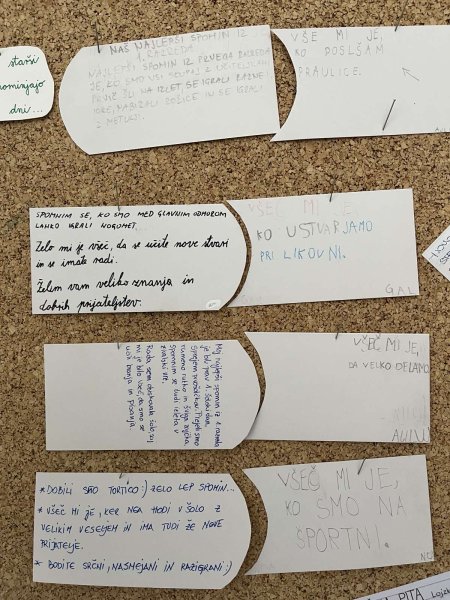 starši
pominjajo
dni...
NAŠ NAJLEPŠI SPOMIN IZ 1.
RAZREDA
NAJLEPŠI SPOMIN IZ PRVEGA RAZREDA
JE, KO SMO VSI SKUPAJ Z UČITELJICAMI
PRVIČ ŠLI NA IZLET, SE IGRALI RAZNE
IGRE, NABIRALI ROŽICE IN SE IGRALI
Z METULJI.
VŠE MI JE,
KO POSLŠAM
PRAULJICE.
SPOMNIM SE, KO SMO MED GLAVNIM ODMOROM
LAHKO IGRALI NOGOMET.
Zelo mi je všeč, da se učite nove stvari
in se imate radi.
Želim vam veliko znanja in
dobrih prijateljstev.
VŠEČ MI JE
KO USTVARJAMO
PRI LIKOVNI.
GAL
Moj najlepši spomin iz 1. razreda
je bil prav 1. šolski dan.
Sprejem prvošolčkov. Prejeli smo
rumeno rutko in
Spomnim se tudi izleta v
živalski vrt.
Rada sem obiskovala šolo, saj
mi je bilo všeč, da smo se
učili branja in pisanja.
VŠEČ MI JE,
DA VELIKO DELAMO
* DOBILI SMO TORTICO :) ZELO LEP SPOMIN...
* VŠEČ MI JE, KER NEA HODI V ŠOLO Z
VELIKIM VESELJEM IN IMA TUDI ŽE NOVE
PRIJATELJE.
* BODITE SRČNI, NASMEJANI IN RAZIGRANI :)
VŠEČ MI JE,
KO SMO NA
ŠPORTNI.
PITA